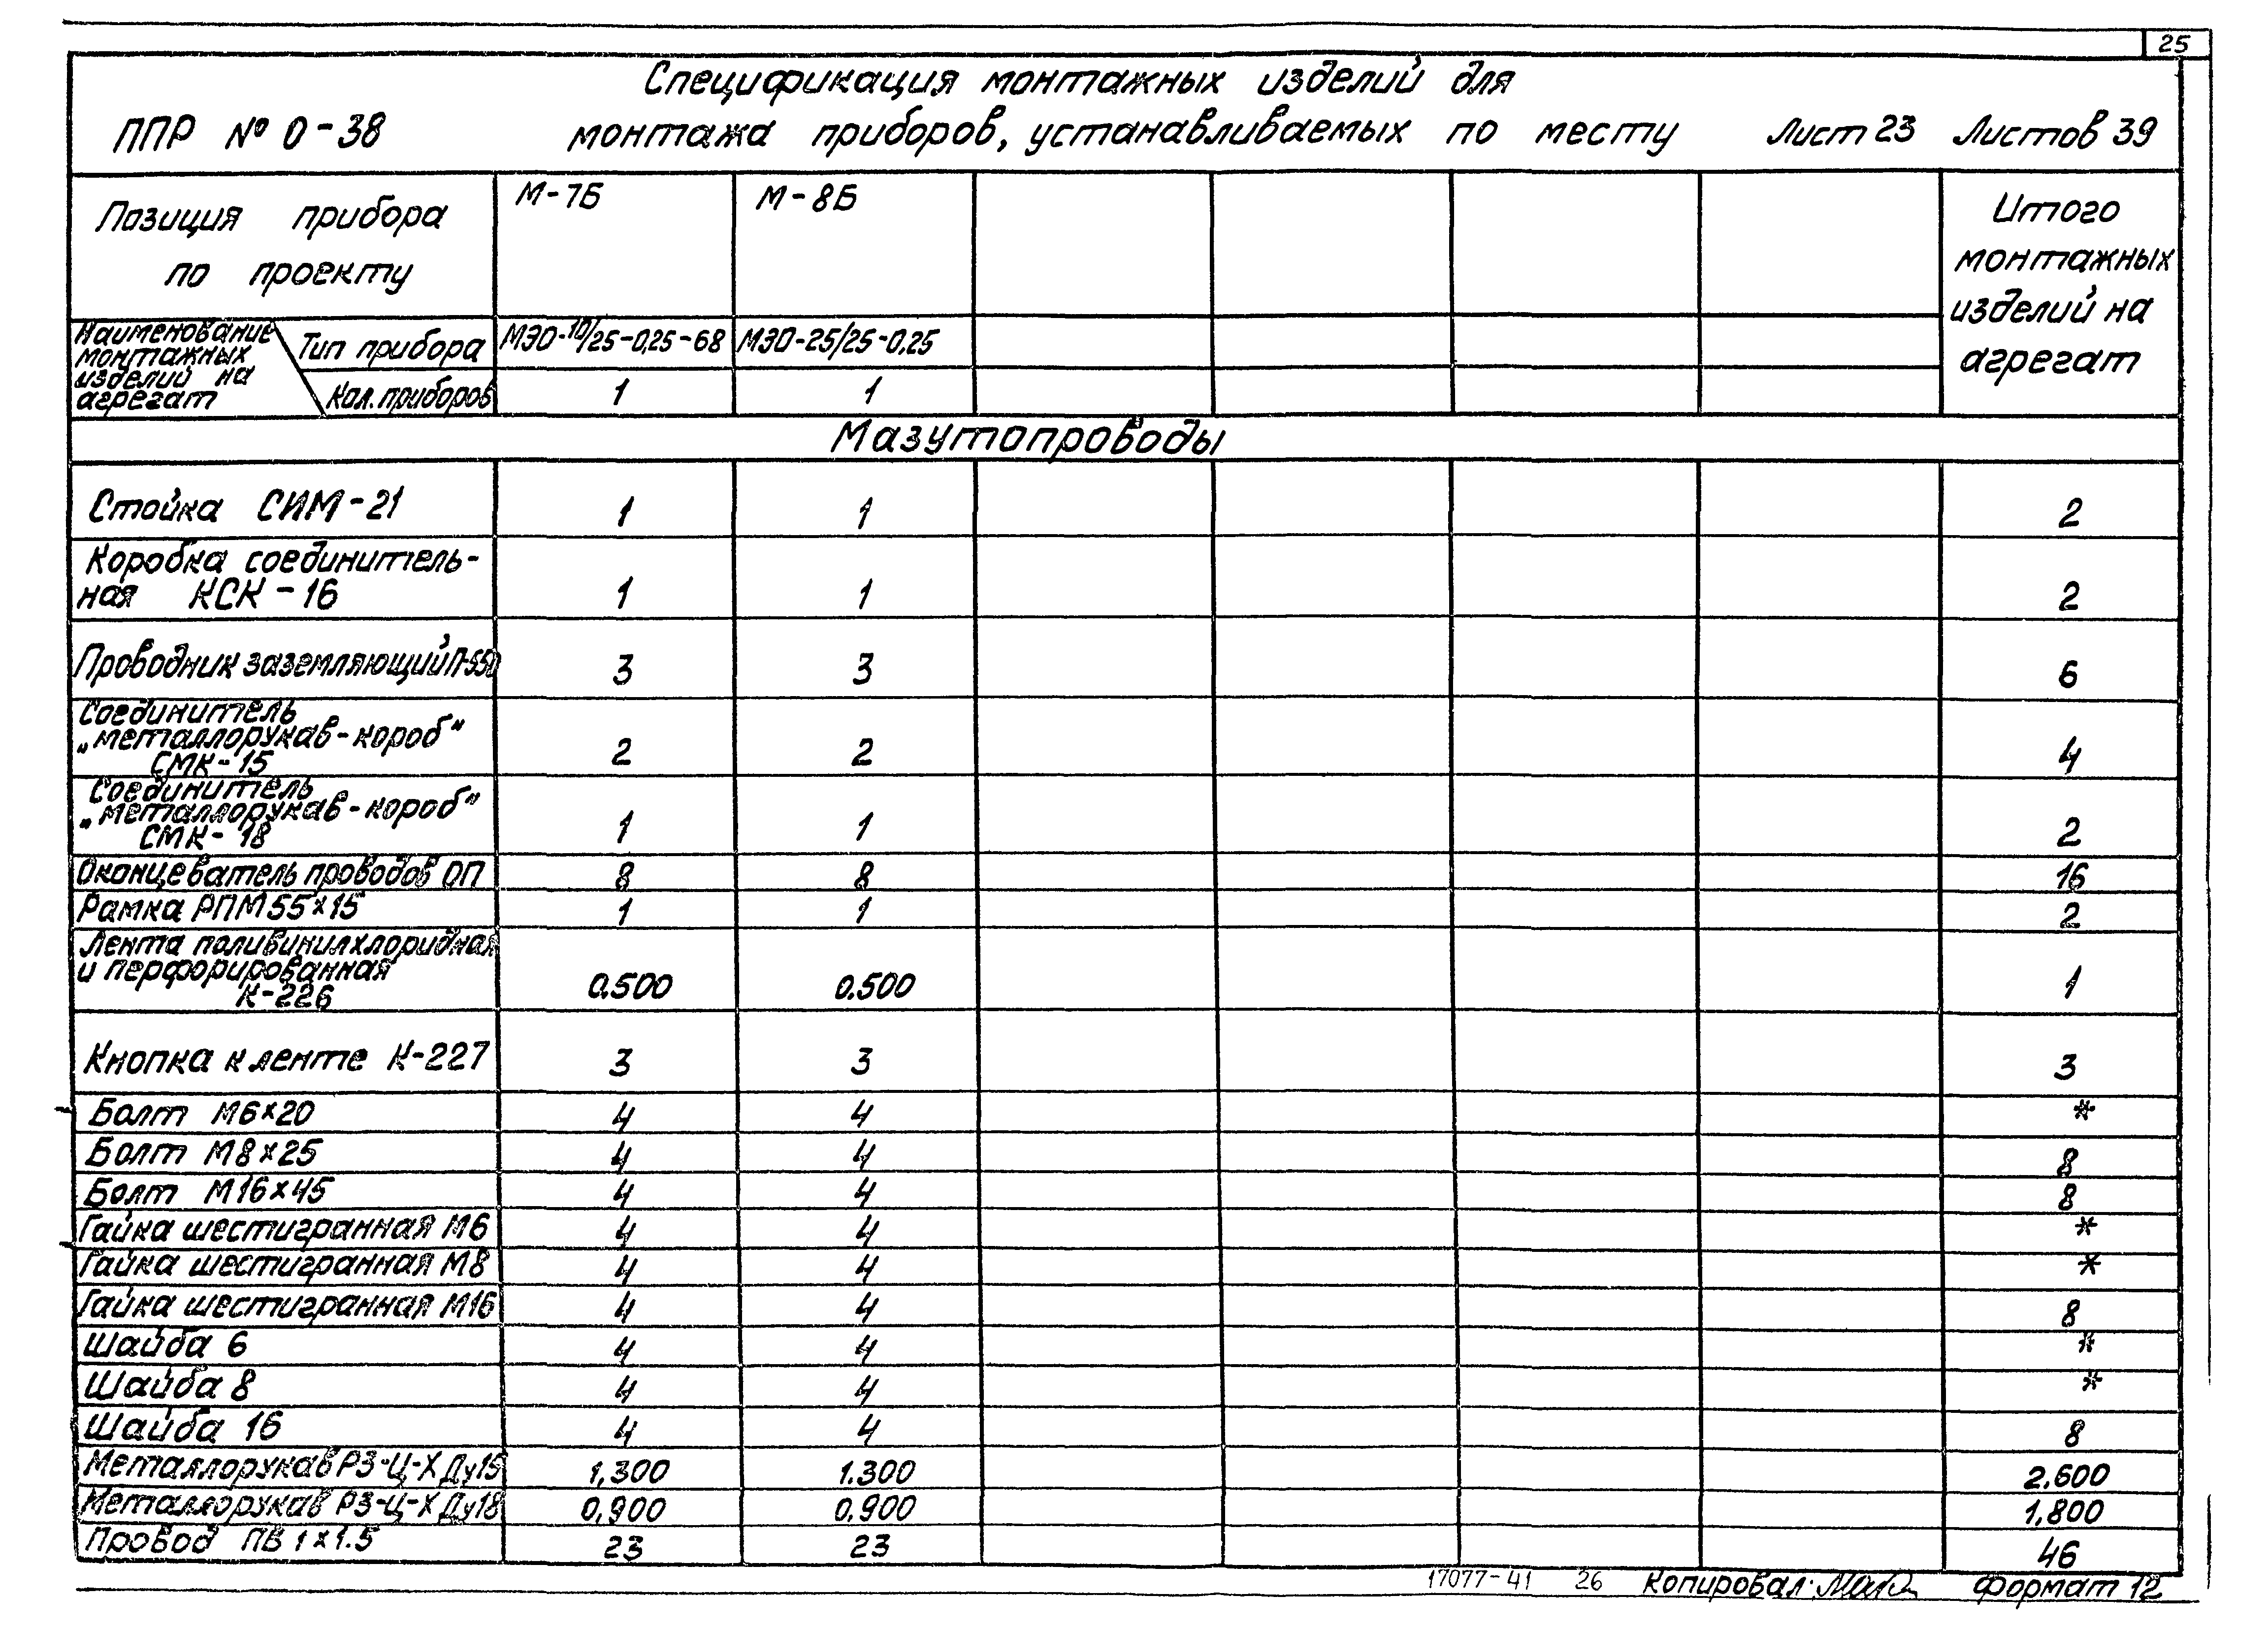 25
Спецификация монтажных изделий для
ППР № 0-38 монтажа приборов, устанавливаемых по месту Лист 23 Листов 39
Позиция прибора
по проекту
М-7Б М-8Б
Итого
монтажных
изделий на
агрегат
Наименование
монтажных
изделий на
агрегат
Тип прибора МЭО-10/25-0,25-68 МЭО-25/25-0.25
Кол. приборов 1 1
Мазутопроводы
Стойка СИМ-21 1 1 2
Коробка соединитель-
ная КСК-16 1 1 2
Проводник заземляющий П-550 3 3 6
Соединитель
„металлорукав-короб"
СМК-15 2 2 4
Соединитель
„металлорукав-короб"
СМК-18 1 1 2
Оконцеватель проводов ОП 8 8 16
Рамка РПМ 55×15 1 1 2
Лента поливинилхлоридная
и перфорированная
К-226 0.500 0.500 1
Кнопка к ленте К-227 3 3 3
Болт М6×20 4 4 *
Болт М8×25 4 4 8
Болт М16×45 4 4 8
Гайка шестигранная М6 4 4 *
Гайка шестигранная М8 4 4 *
Гайка шестигранная М16 4 4 8
Шайба 6 4 4 *
Шайба 8 4 4 *
Шайба 16 4 4 8
Металлорукав РЗ-Ц-Х Ду15 1,300 1.300 2.600
Металлорукав РЗ-Ц-Х Ду18 0,900 0.900 1,800
Провод ПВ 1×1.5 23 23 46
17077-41 26 Копировал: Формат 12